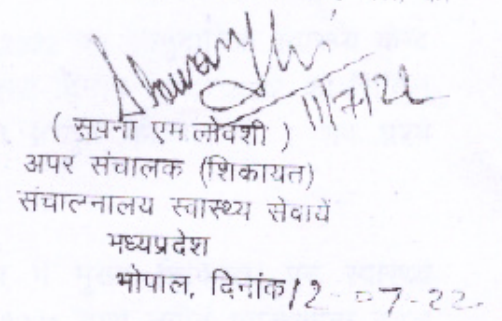 11/7/22
( सुपर्ना एम लोवंशी )
अपर संचालक (शिकायत)
संचालनालय स्वास्थ्य सेवायें
मध्यप्रदेश
भोपाल, दिनांक 12-07-22.